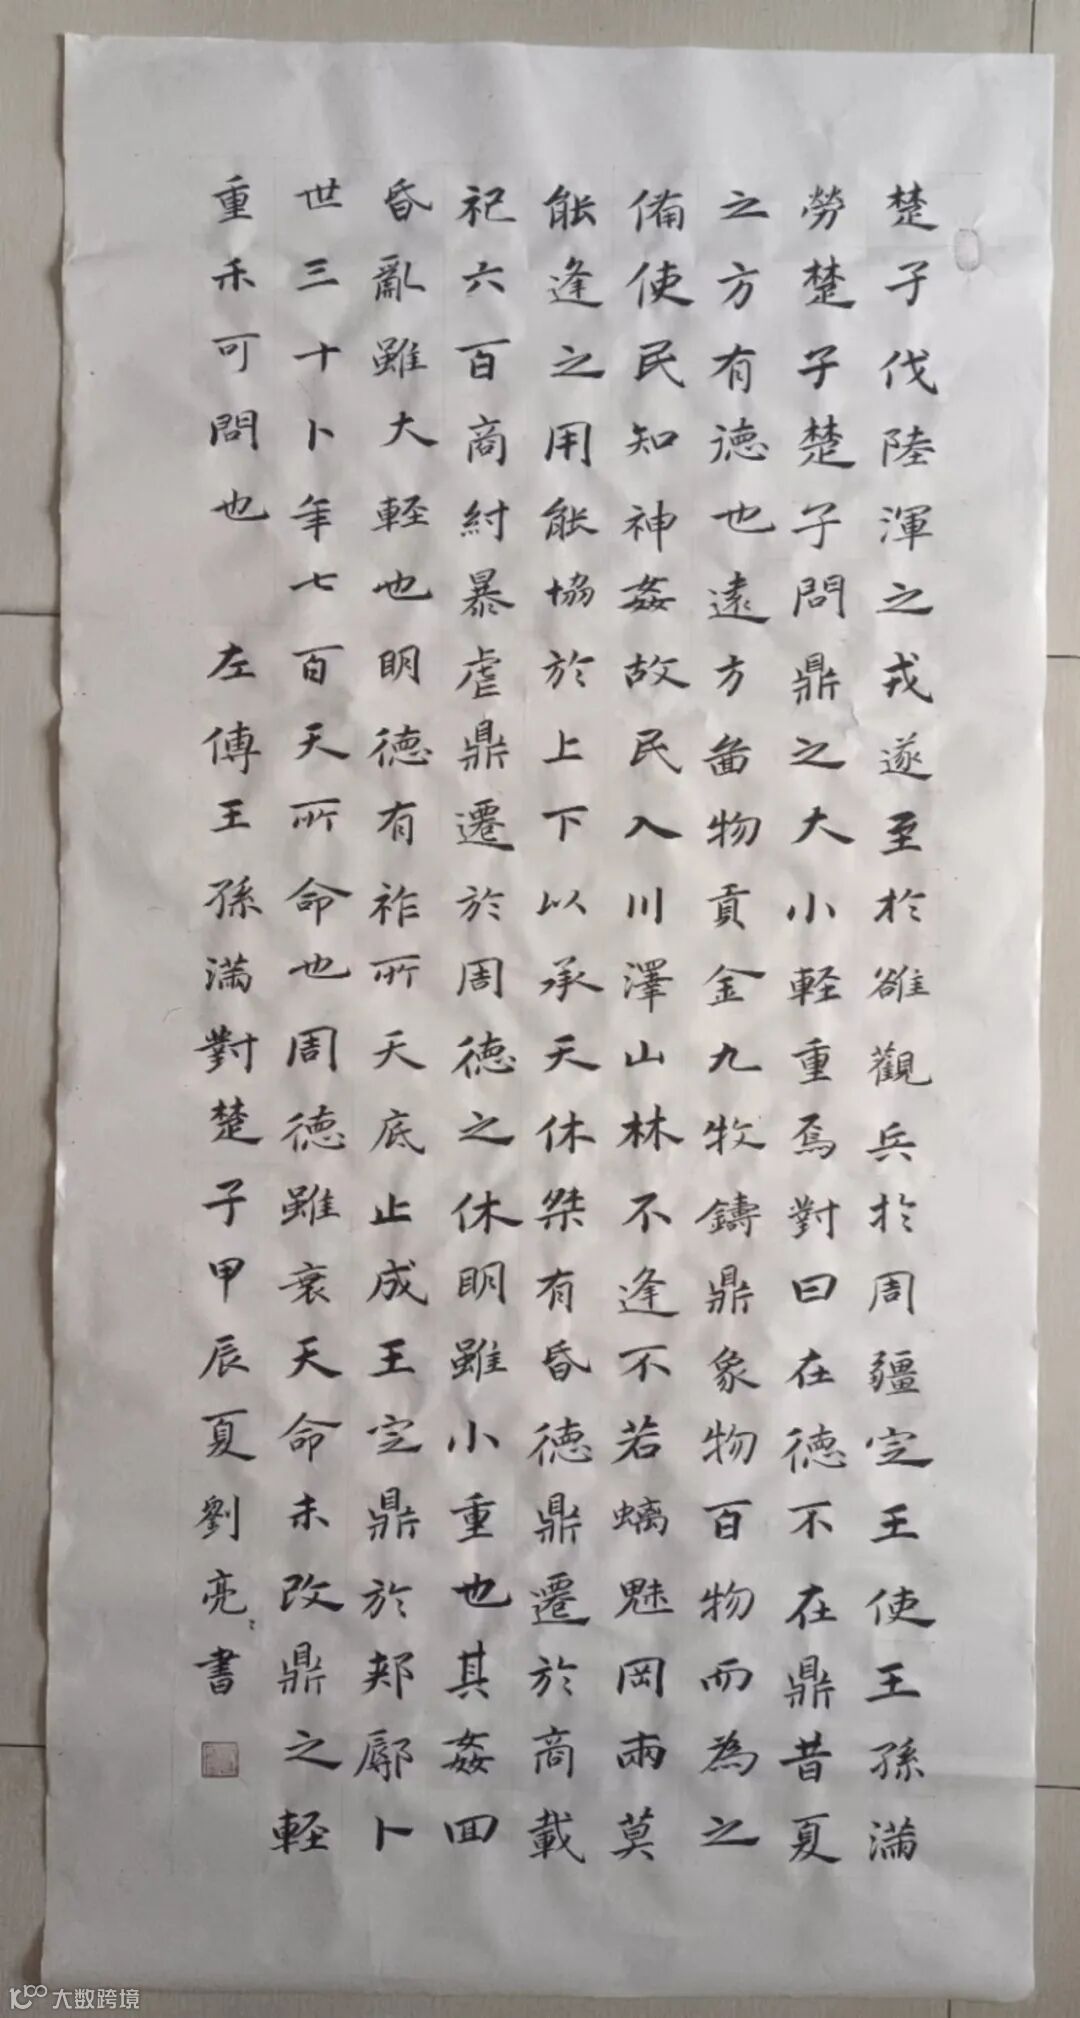 楚子伐陸渾之戎遂至於雒觀兵於周疆定王使王孫滿
勞楚子楚子問鼎之大小軽重焉對曰在徳不在鼎昔夏
之方有徳也遠方啚物貢金九牧鑄鼎象物百物而為之
備使民知神姦故民入川澤山林不逢不若螭魅罔兩莫
能逢之用能協於上下以承天休桀有昏徳鼎遷於商載
祀六百商紂暴虐鼎遷於周徳之休明雖小重也其姦回
昏亂雖大軽也明徳有祚所天底止成王定鼎於郟鄏卜
世三十卜年七百天所命也周徳雖衰天命未改鼎之軽
重未可問也 左傳王孫滿對楚子甲辰夏劉亮〻書
大数跨境